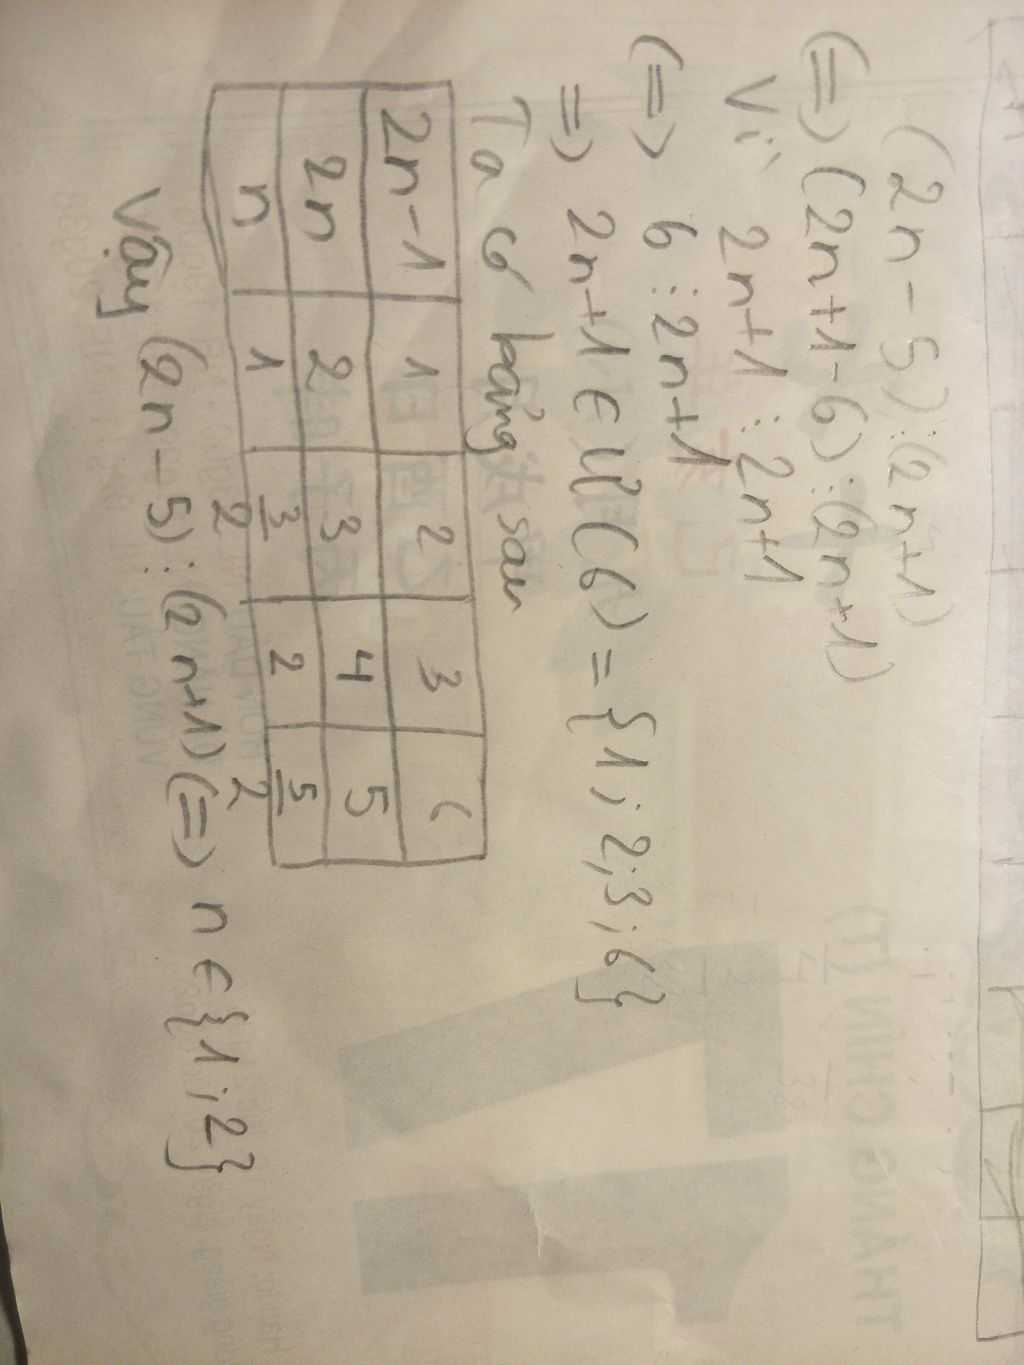 (2n - 5) ⋮ (2n+1)
(=) (2n+1-6) ⋮ (2n+1)
Vì 2n+1 ⋮ 2n+1
(=) 6 ⋮ 2n+1
=) 2n+1 ∈ Ư(6) = {1; 2; 3; 6}
Ta có bảng sau
2n-1 1 2 3
2n 2 3 4 5
n 1 3/2 2 5/2
Vậy (2n-5) ⋮ (2n+1) (=) n ∈ {1; 2}